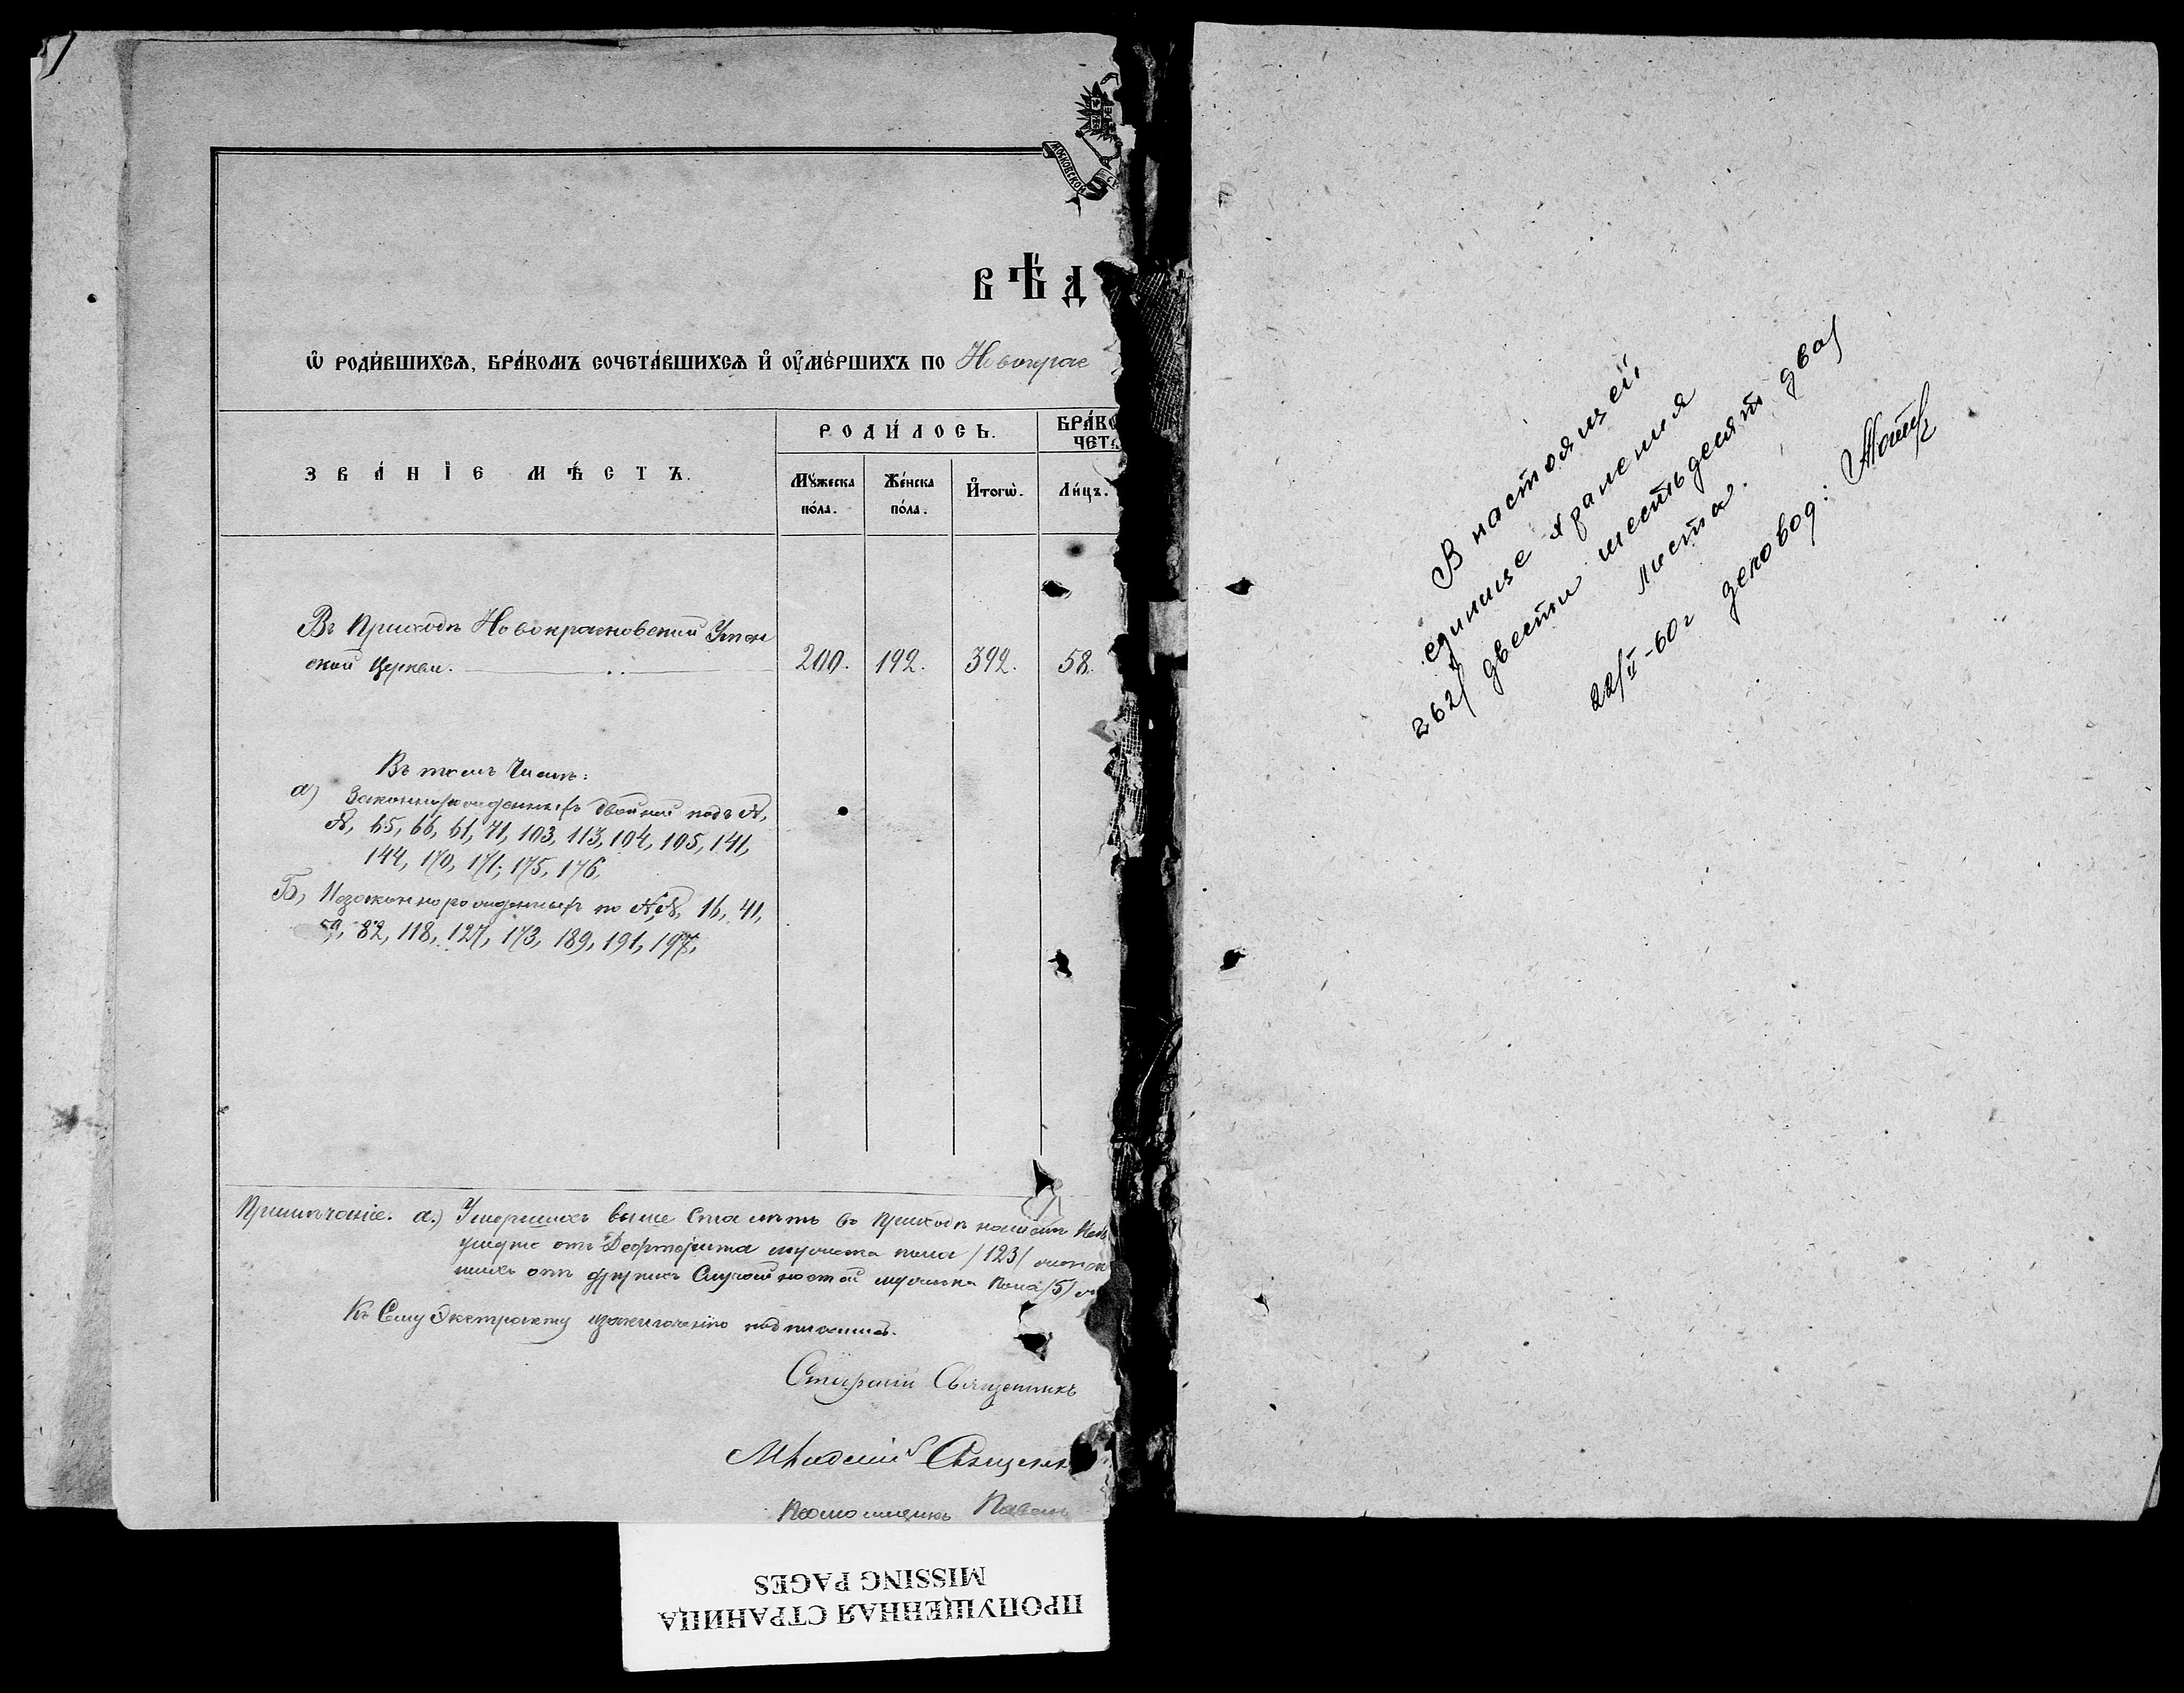 МОСКОВСКОЙ
ВѢ́Д
Ѡ҆ РОДИ́ВШИХСѦ, БРА́КОМЪ СОЧЕТА́ВШИХСѦ И҆ ОУ҆МЕ́РШИХЪ ПО Новокрас
ЗВА́НІЕ МѢ́СТЪ.
РОДИ́ЛОСЬ.
БРА́КО
ЧЕТА
Мꙋ́жеска по́ла.
Же́нска по́ла.
И҆тогѡ̀.
Ли́цъ.
Въ Приходѣ Новокрасновской Успен
ской Церкви. 200. 192. 392. 58.
Въ томъ Числѣ:
а) Законнорожденныхъ двойней подъ №
№, 65, 66, 61, 71, 103, 113, 104, 105, 141,
144, 170, 171, 175, 176.
Б, Незаконнорожденныхъ по №№, 16, 41,
59, 82, 118, 127, 173, 189, 191, 197,
Примѣчаніе. а.) Умершихъ выше Ста лѣтъ въ Приходѣ нашемъ
отъ Дефтерита мужеска пола /123/
отъ других Случайностей мужеска Пола /5/
Къ Сему Экстракту подписались.
Старшій Священникъ
Младшій Священн
Помощникъ Павелъ
ПРОПУЩЕННАЯ СТРАНИЦА
MISSING PAGES
В настоящей
единице хранения
262/ двести шестьдесят два/
листа.
22/II-60г деловод: